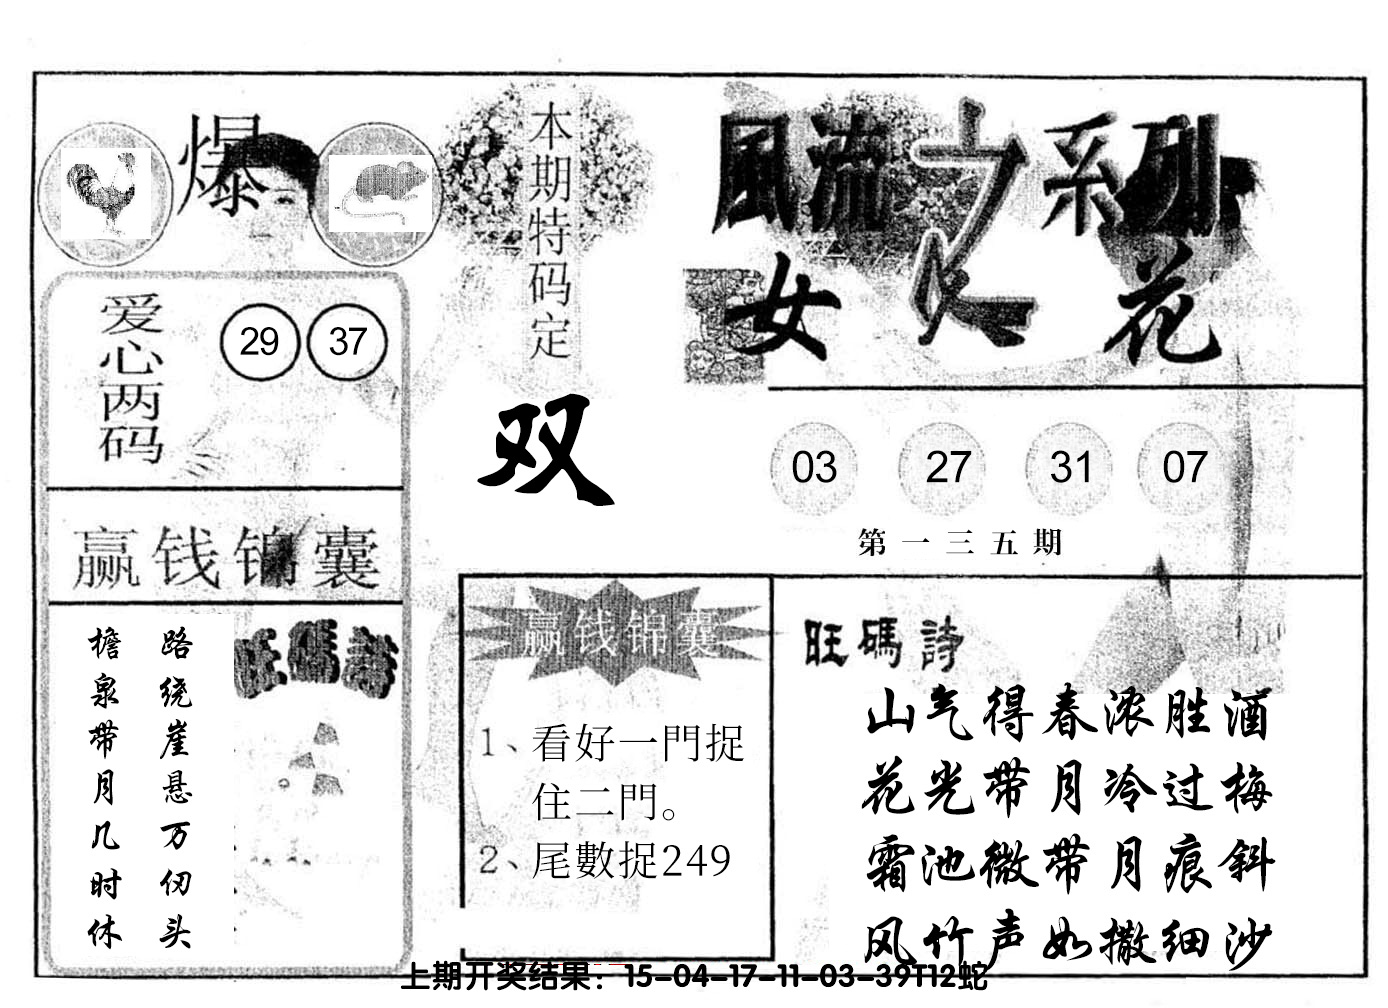 爆
本期特码定
双
風流之系列
女人花
爱心两码
29 37
03 27 31 07
第一三五期
赢钱锦囊
路绕崖悬万仞头
檐泉带月几时休
旺碼詩
赢钱锦囊
1、看好一門捉
住二門。
2、尾數捉249
旺碼詩
山气得春浓胜酒
花光带月冷过梅
霜池微带月痕斜
风竹声如撒细沙
上期开奖结果：15-04-17-11-03-39T12蛇